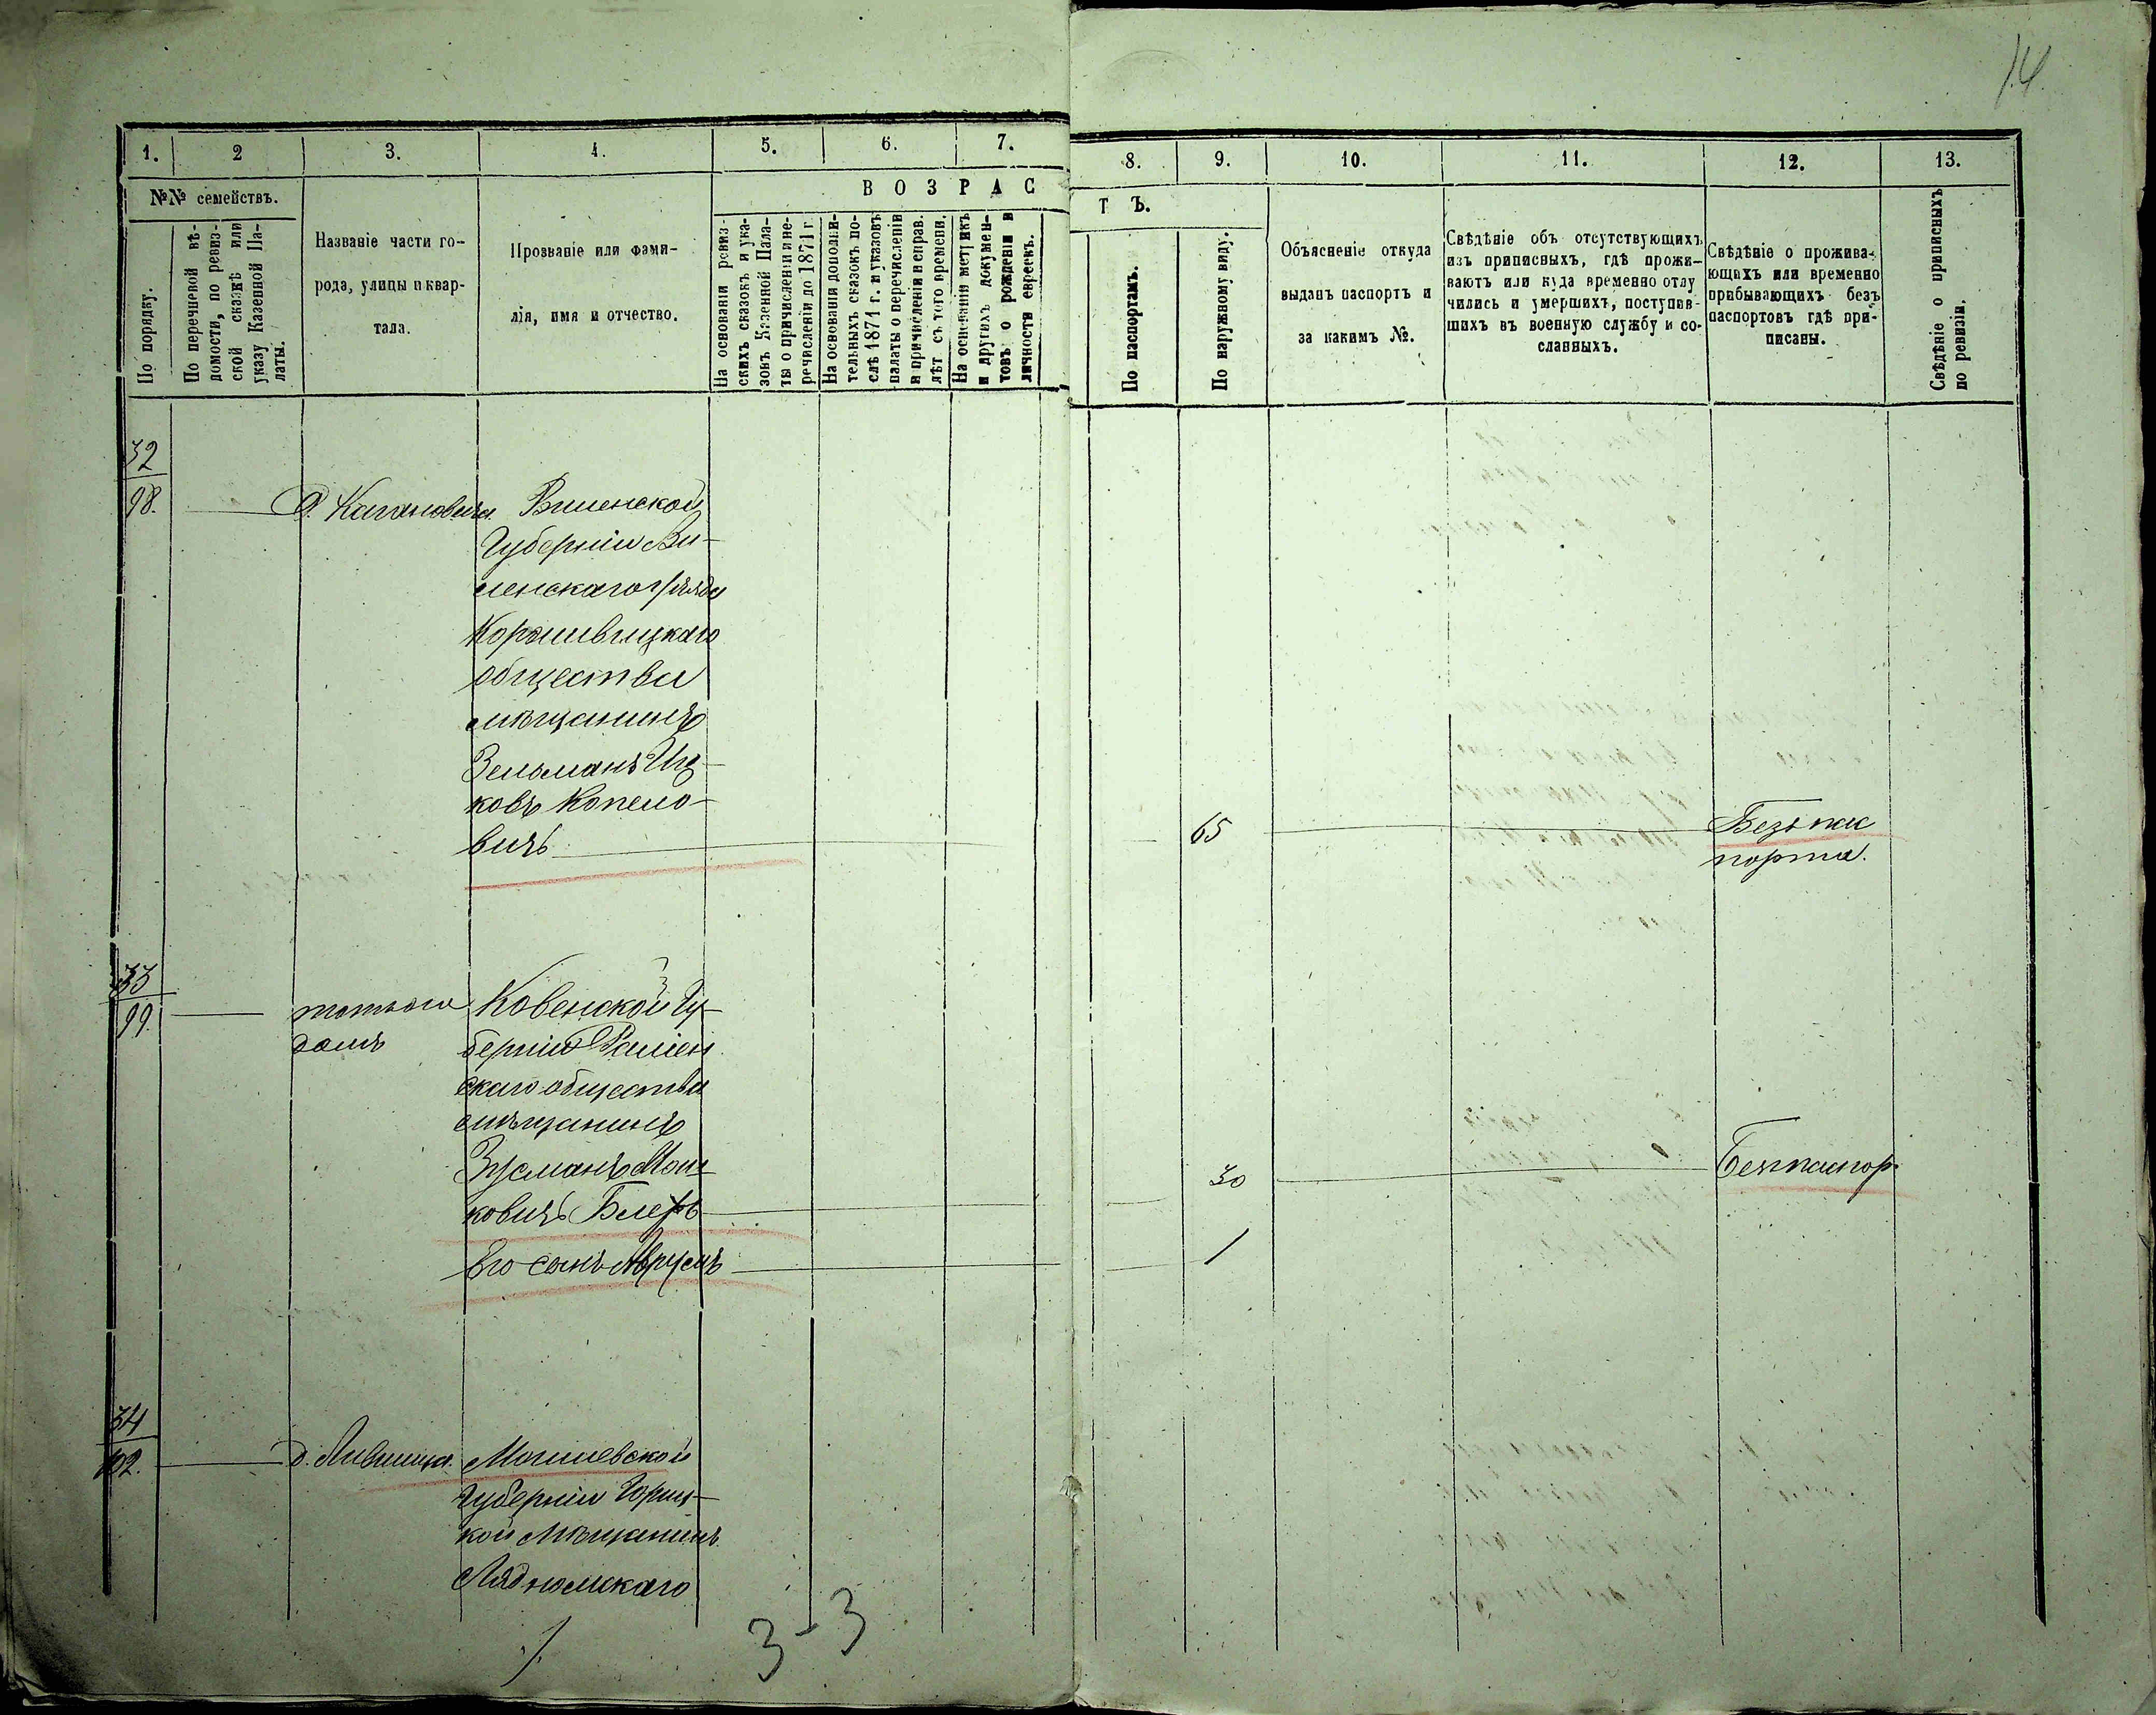 14
1.
2
3.
4.
5.
6.
7.
8.
9.
10.
11.
12.
13.
№№ семействъ.
По порядку.
По перечневой вѣ-
домости, по ревиз-
ской сказкѣ или
указу Казенной Па-
латы.
Названіе части го-
рода, улицы и квар-
тала.
Прозваніе или фами-
лія, имя и отчество.
ВОЗРАС
ТЪ.
На основаніи ревиз-
скихъ сказокъ и ука-
зовъ Казенной Пала-
ты о причисленіи и пе-
речисленіи до 1871 г.
На основаніи дополни-
тельныхъ сказокъ по-
слѣ 1871 г. и указовъ
палаты о перечисленіи
и причисленіи и справ.
лѣт съ того времени.
На основаніи метрикъ
и другихъ докумен-
товъ о рожденіи и
личности евреекъ.
По паспортамъ.
По наружному виду.
Объясненіе откуда
выданъ паспортъ и
за какимъ №.
Свѣдѣніе объ отсутствующихъ
изъ приписныхъ, гдѣ прожи-
ваютъ или куда временно отлу
чились и умершихъ, поступив-
шихъ въ военную службу и со-
сланныхъ.
Свѣдѣніе о прожива-
ющихъ или временно
прибывающихъ безъ
паспортовъ гдѣ при-
писаны.
Свѣдѣніе о приписныхъ
по ревизіи.
32
98.
д. Кагановича
Виленской
Губерніи Ви-
ленскаго уѣзда
общества
мѣщанинъ
Зельманъ Иц-
ковъ Копело-
вичъ
65
Безъ пас
порта.
33
99.
тотъже
домъ
Ковенской Гу-
берніи
скаго общества
мѣщанинъ
Зусманъ Мош-
ковичъ
30
Безпаспор.
Его сынъ Абрумъ
1
34
102.
д. Лившица.
Могилевской
Губерніи Гориц-
кой Мѣщанинъ
3-3